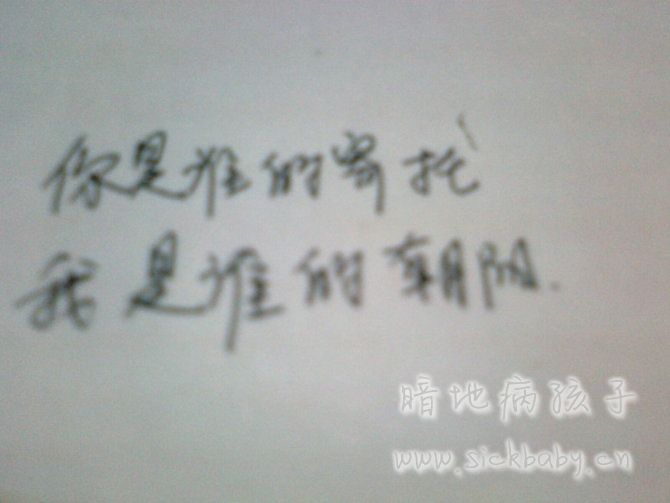 你是谁的寄托
我是谁的朝阳.
暗地病孩子
www.sickbaby.cn